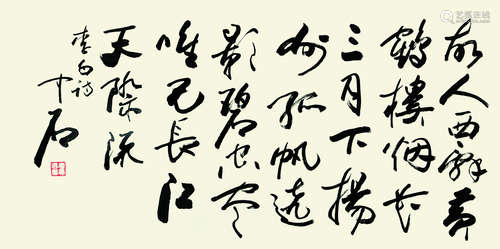 故人西辞黄
鹤樓烟花
三月下揚
州孤帆遠
影碧空尽
唯见長江
天際流
李白詩
中石